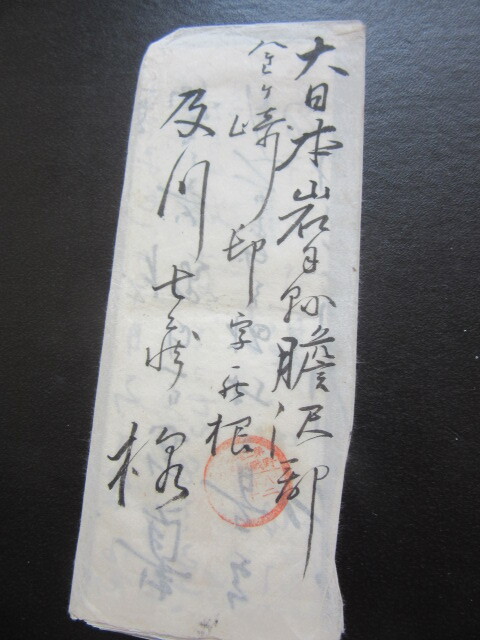 大日本岩手縣膽沢郡
金ヶ崎町字矢根
及川七蔵
様